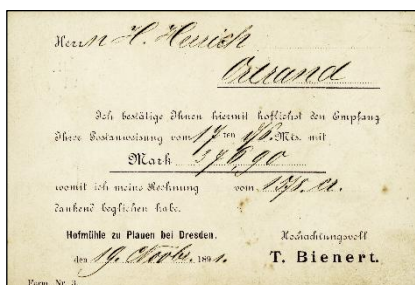 Herrn H. Henrich
Ortrand
Ich bestätige Ihnen hiermit höflichst den Empfang
Ihrer Postanweisung vom 17ten Mts. mit
Mark 376,90
womit ich meine Rechnung vom
dankend beglichen habe.
Hofmühle zu Plauen bei Dresden.
Hochachtungsvoll
den 19. Octobr. 1891.
T. Bienert.
Form. Nr. 3.